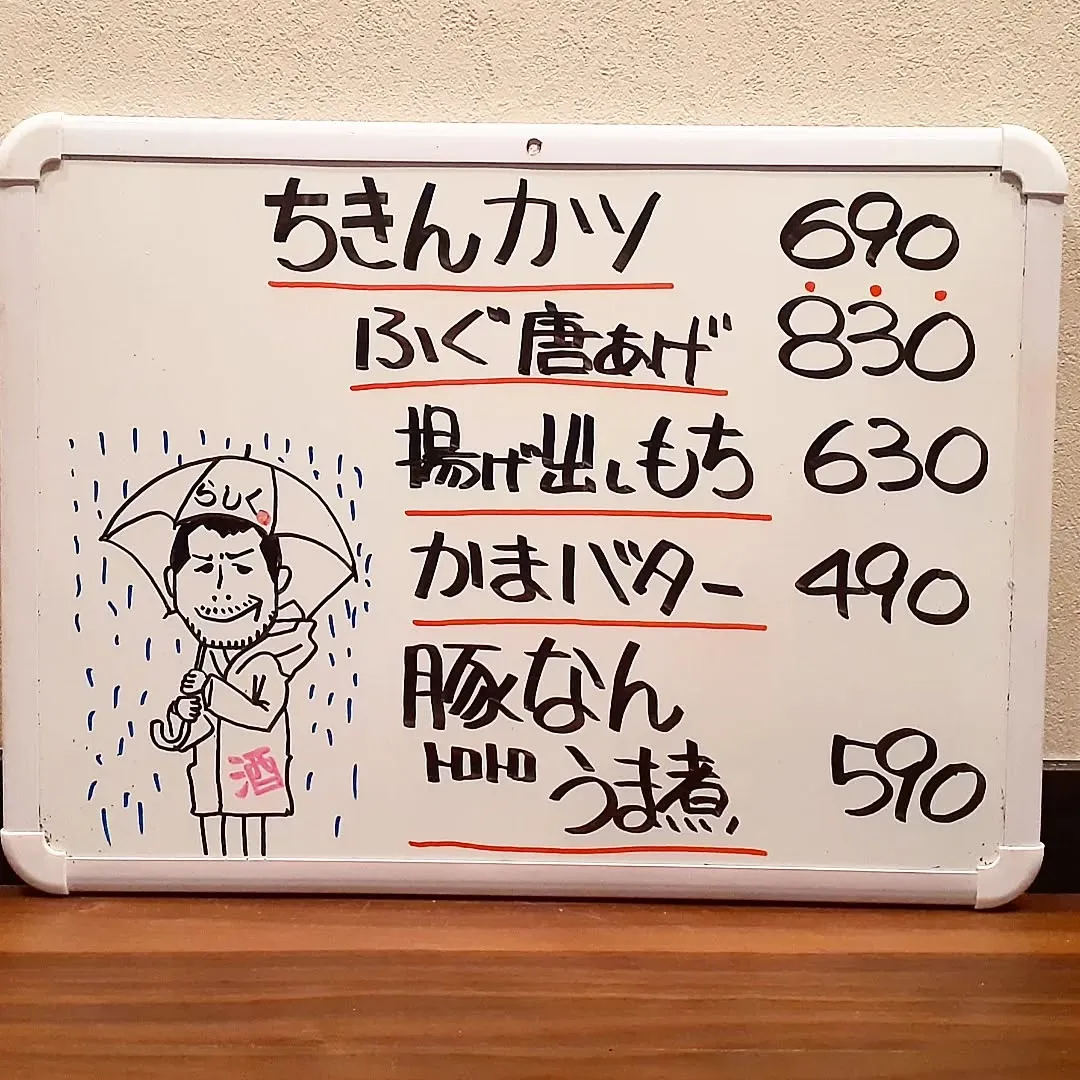 ちきんカツ 690
ふぐ唐あげ 830
揚げ出しもち 630
かまバター 490
豚なん
トロトロ うま煮 590
らしく
酒